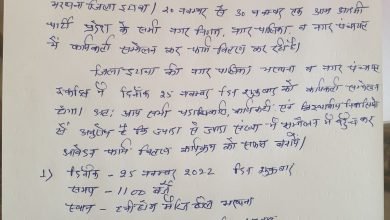 भरथना जिला इटावा | 20 नवम्बर से 30 नवम्बर तक आम आदमी
पार्टी प्रदेश के सभी नगर निगम, नगर पालिका, व नगर पंचायत
में कार्यकर्ता सम्मेलन कर फार्म वितरण कर रही है।
जिला इटावा की नगर पालिका भरथना व नगर पंचायत
में दिनांक 25 नवम्बर दिन शुक्रवार को कार्यकर्ता सम्मेलन
होगा। अतः आप सभी पदाधिकारि, कार्यकर्ता एवं
से अनुरोध है कि ज्यादा से ज्यादा संख्या में सम्मेलन में पहुँच कर
आवेदन फार्म वितरण कार्यक्रम को सफल बनायें।
1) दिनांक - 25 नवम्बर 2022 दिन शुक्रवार
समय - 11:00 बजे
स्थान - भरथना